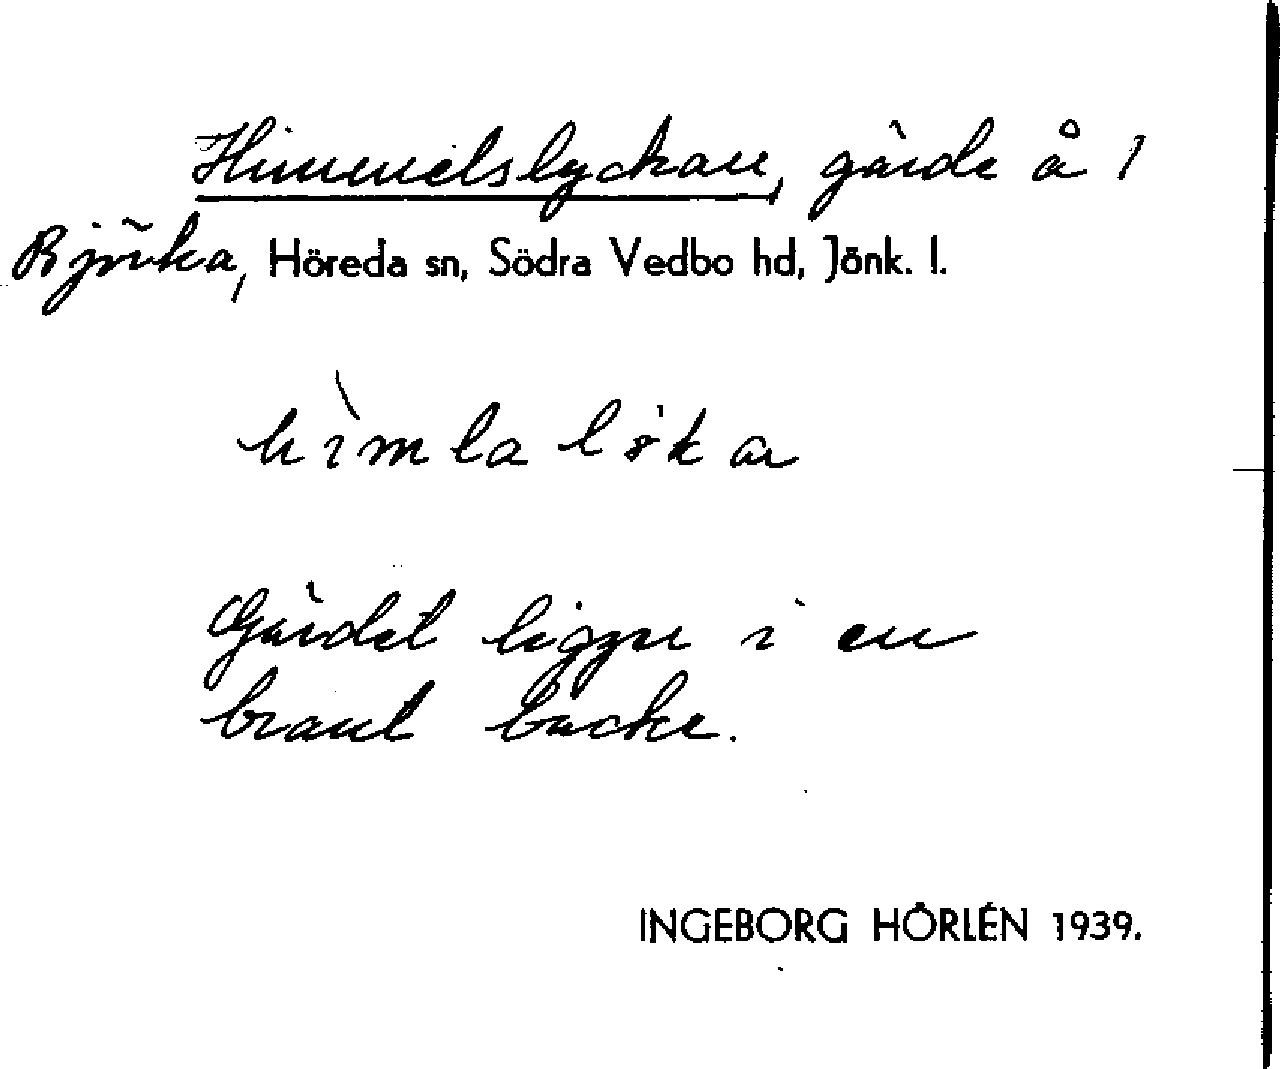 Himmelslyckan, gärde å 1
Björka, Höreda sn, Södra Vedbo hd, Jönk. l.
hìmla løkar
Gärdet ligger i en
brant backe.
INGEBORG HÖRLÉN 1939.